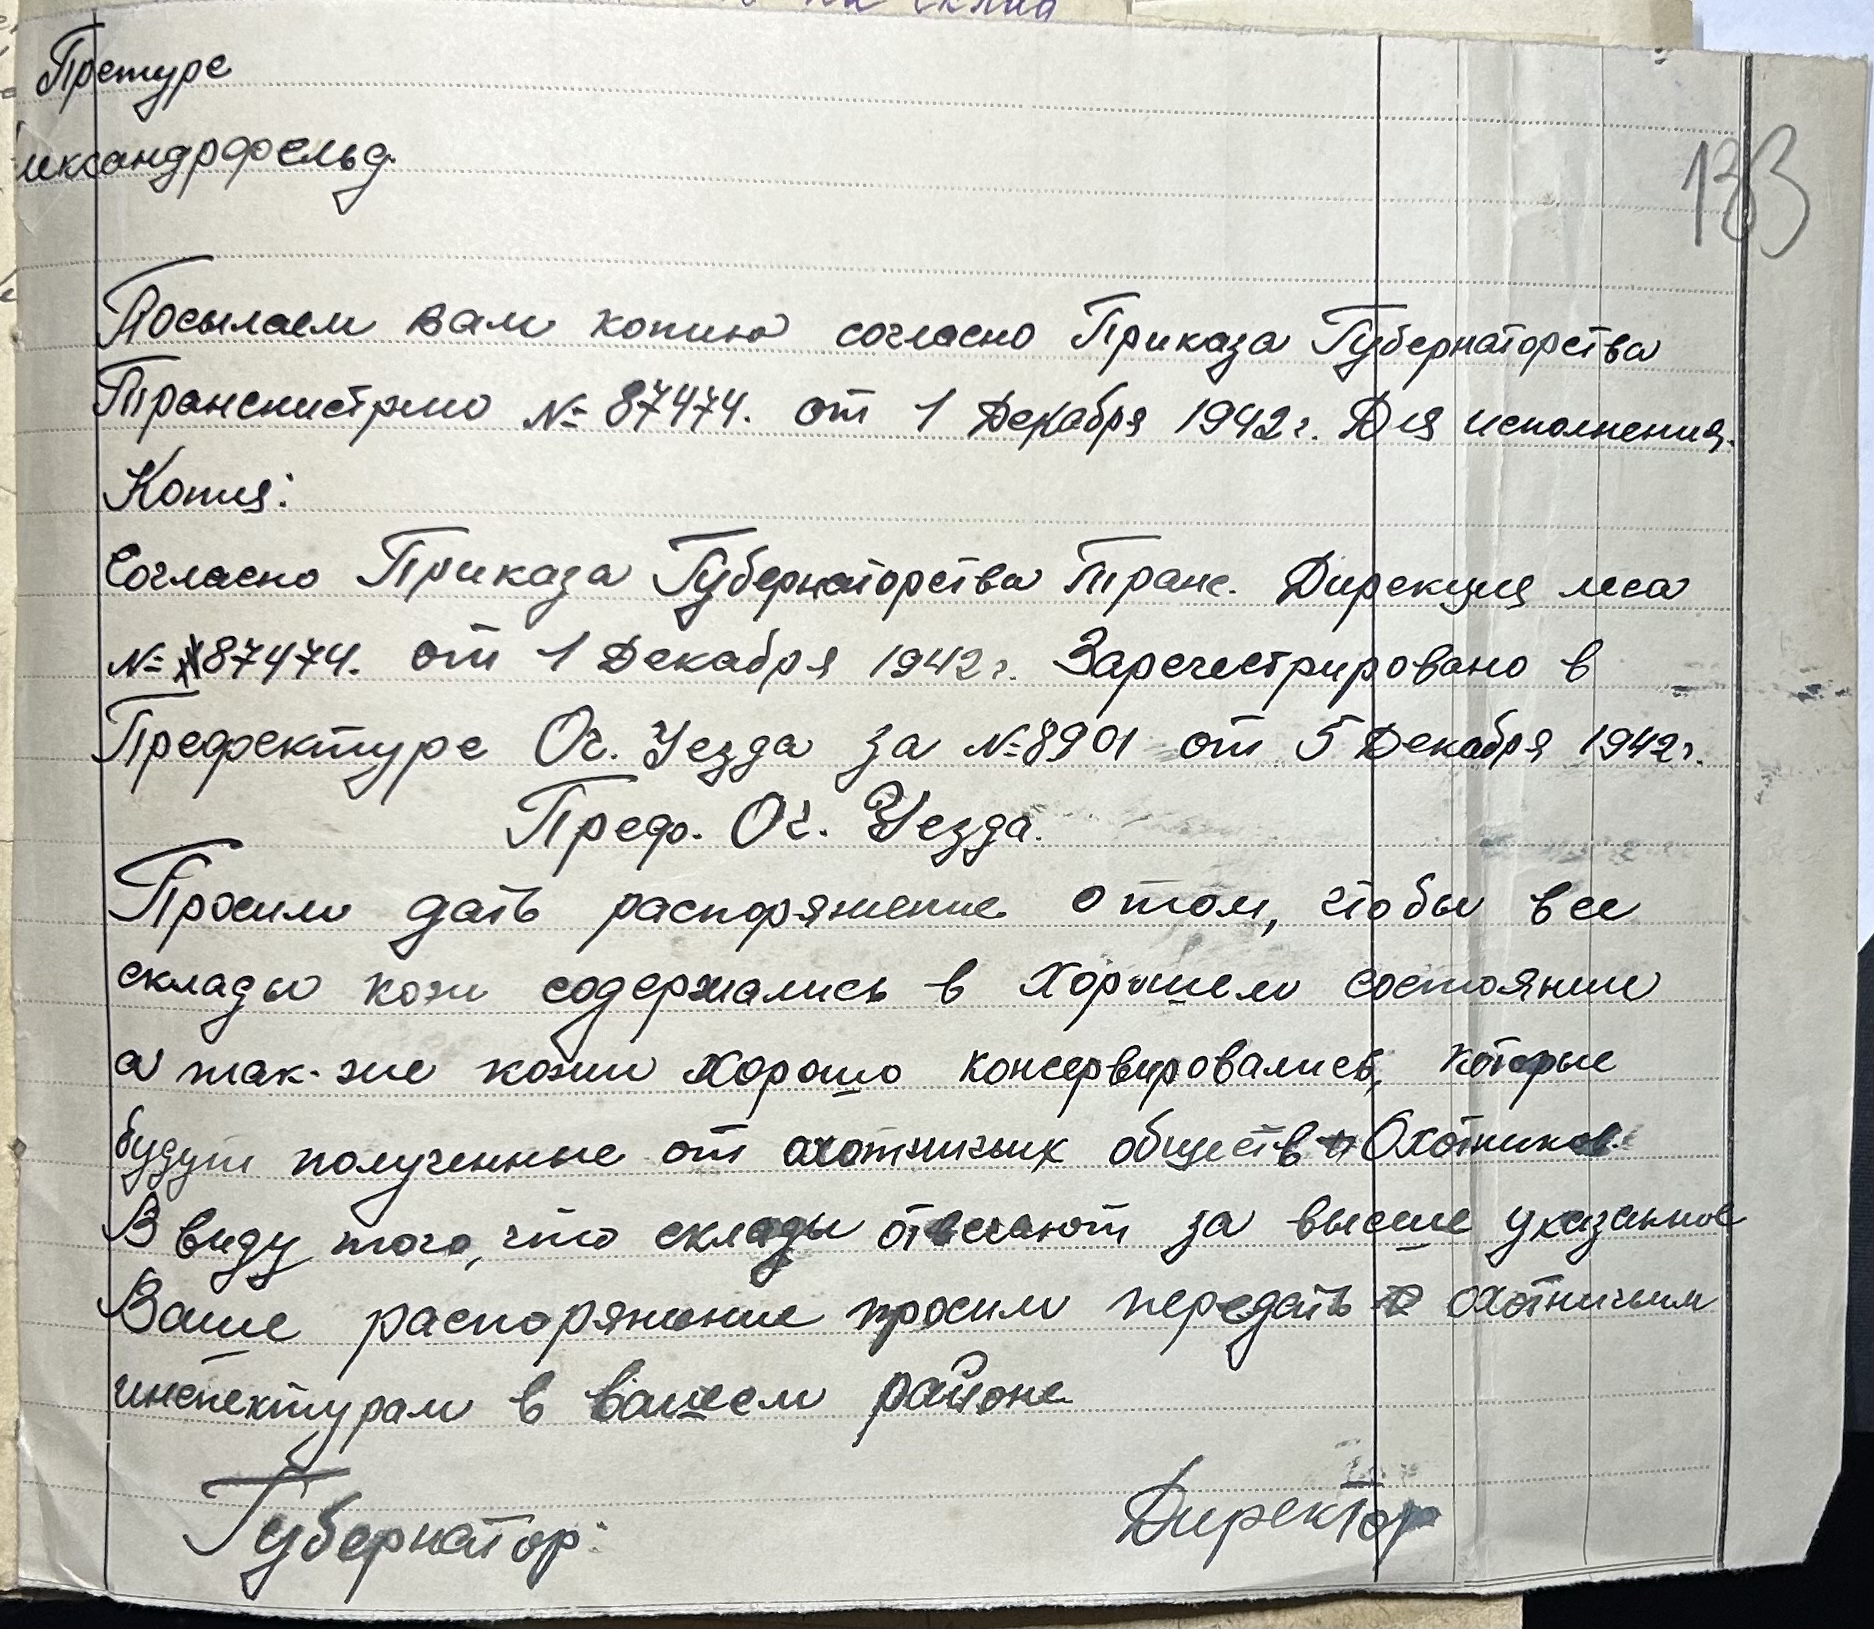 на склад
Претуре
лександрфельд.
133
Посылаем вам копию согласно Приказа Губернаторства
Транснистрию № 87474. от 1 Декабря 1942 г. Для исполнения.
Копия:
Согласно Приказа Губернаторства Транс. Дирекция леса
№ 87474. от 1 Декабря 1942 г. Зарегестрировано в
Префектуре Оч. Уезда за № 8901 от 5 Декабря 1942 г.
Преф. Оч. Уезда.
Просим дать распоряжение о том, чтобы все
склады кожи содержались в хорошем состоянии
а так-же кожи хорошо консервировались, которые
будут полученные от охотничьих обществ и Охотников.
В виду того, что склады отвечают за высше указанное
Ваше распоряжение просим передать охотничьим
инспектурам в вашем районе
Губернатор:
Директор